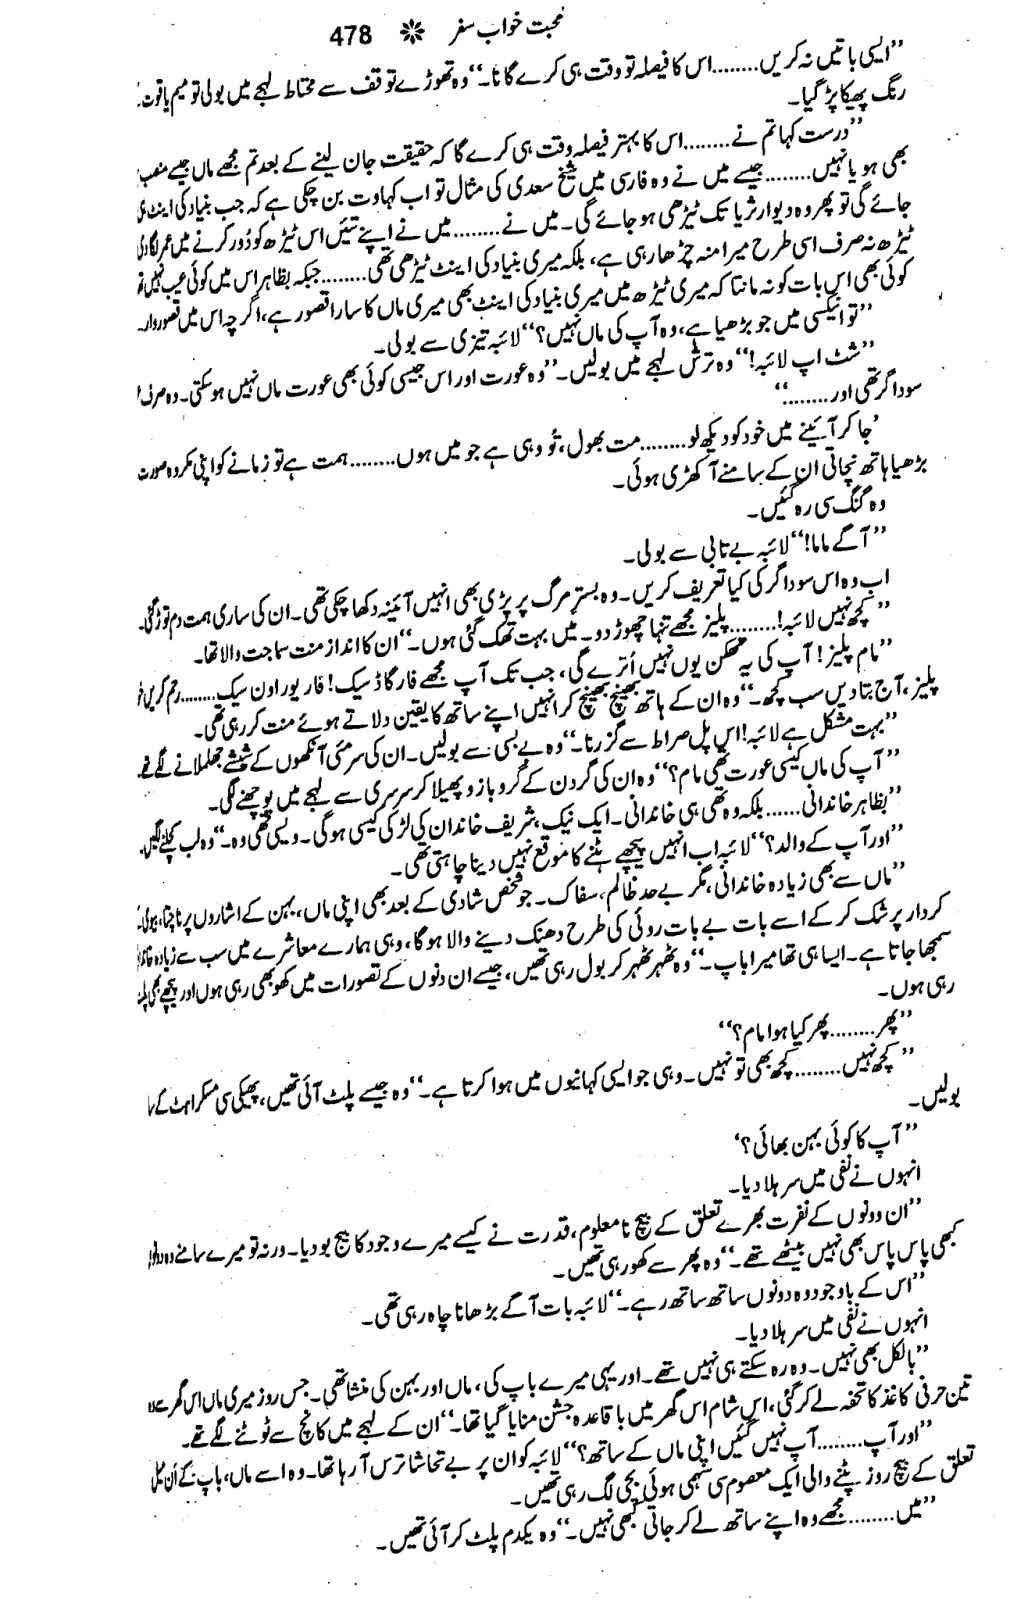 محبت خواب سفر ❋ 478
”ایسی باتیں نہ کریں........اس کا فیصلہ تو وقت ہی کرے گا نا۔“ وہ تھوڑے توقف سے محتاط لہجے میں بولی تو میم یاقوت
رنگ پھیکا پڑ گیا۔
”درست کہا تم نے........اس کا بہتر فیصلہ وقت ہی کرے گا کہ حقیقت جان لینے کے بعد تم مجھے ماں جیسے منصب
بھی ہو یا نہیں........جیسے میں نے وہ فارسی میں شیخ سعدی کی مثال تو اب کہاوت بن چکی ہے کہ جب بنیاد کی اینٹ
جائے گی تو پھر وہ دیوار ثریا تک ٹیڑھی ہو جائے گی۔ میں نے........میں نے اپنے تئیں اس ٹیڑھ کو دُور کرنے میں عمر لگا دی
ٹیڑھ نہ صرف اسی طرح میرا منہ چڑھا رہی ہے، بلکہ میری بنیاد کی اینٹ ٹیڑھی تھی........جبکہ بظاہر اس میں کوئی عیب نہیں
کوئی بھی اس بات کو نہ مانتا کہ میری ٹیڑھ میں میری بنیاد کی اینٹ بھی میری ماں کا سارا قصور ہے، اگرچہ اس میں قصوروار
”تو انیکسی میں جو بڑھیا ہے، وہ آپ کی ماں نہیں؟“ لائبہ تیزی سے بولی۔
”شٹ اپ لائبہ!“ وہ ترش لہجے میں بولیں۔ ”وہ عورت اور اس جیسی کوئی بھی عورت ماں نہیں ہو سکتی۔ وہ صرف
سوداگر تھی اور........“
’جا کر آئینے میں خود کو دیکھ لو........مت بھول، تُو وہی ہے جو میں ہوں........ہمت ہے تو زمانے کو اپنی مکروہ صورت
بڑھیا ہاتھ نچاتی ان کے سامنے آ کھڑی ہوئی۔
وہ گنگ سی رہ گئیں۔
”آگے ماما!“ لائبہ بے تابی سے بولی۔
اب وہ اس سوداگر کی کیا تعریف کریں۔ وہ بسترِ مرگ پر پڑی بھی انہیں آئینہ دکھا چکی تھی۔ ان کی ساری ہمت دم توڑ گئی۔
”کچھ نہیں لائبہ!........پلیز مجھے تنہا چھوڑ دو۔ میں بہت تھک گئی ہوں۔“ ان کا انداز منت سماجت والا تھا۔
”مام پلیز! آپ کی یہ تھکن یوں نہیں اُترے گی، جب تک آپ مجھے فار گاڈ سیک! فار یور اون سیک........رحم کریں
پلیز، آج بتا دیں سب کچھ۔“ وہ ان کے ہاتھ بھینچ بھینچ کر انہیں اپنے ساتھ کا یقین دلاتے ہوئے منت کر رہی تھی۔
”بہت مشکل ہے لائبہ! اس پل صراط سے گزرنا۔“ وہ بے بسی سے بولیں۔ ان کی سرمئی آنکھوں کے شیشے جھلملانے لگے تھے
”آپ کی ماں کیسی عورت تھی مام؟“ وہ ان کی گردن کے گرد بازو پھیلا کر سرسری سے لہجے میں پوچھنے لگی۔
”بظاہر خاندانی......بلکہ وہ تھی ہی خاندانی۔ ایک نیک، شریف خاندان کی لڑکی کیسی ہو گی۔ ویسی تھی وہ۔“ وہ لب کچلنے لگیں
”اور آپ کے والد؟“ لائبہ اب انہیں پیچھے ہٹنے کا موقع نہیں دینا چاہتی تھی۔
”ماں سے بھی زیادہ خاندانی، مگر بے حد ظالم، سفاک۔ جو شخص شادی کے بعد بھی اپنی ماں، بہن کے اشاروں پر ناچتا، بیوی
کردار پر شک کر کے اسے بات بے بات روئی کی طرح دھنک دینے والا ہو گا، وہی ہمارے معاشرے میں سب سے زیادہ
سمجھا جاتا ہے۔ ایسا ہی تھا میرا باپ۔“ وہ ٹھہر ٹھہر کر بول رہی تھیں، جیسے ان دنوں کے تصورات میں کھو بھی رہی ہوں اور پیچھے بھی
رہی ہوں۔
”پھر........پھر کیا ہوا مام؟“
”کچھ نہیں........کچھ بھی تو نہیں۔ وہی جو ایسی کہانیوں میں ہوا کرتا ہے۔“ وہ جیسے پلٹ آئی تھیں، پھیکی سی مسکراہٹ کے
بولیں۔
”آپ کا کوئی بہن بھائی؟‘
انہوں نے نفی میں سر ہلا دیا۔
”ان دونوں کے نفرت بھرے تعلق کے بیچ نا معلوم، قدرت نے کیسے میرے وجود کا بیج بو دیا۔ ورنہ تو میرے سامنے وہ
کبھی پاس پاس بھی نہیں بیٹھے تھے۔“ وہ پھر سے کھو رہی تھیں۔
”اس کے باوجود وہ دونوں ساتھ ساتھ رہے۔“ لائبہ بات آگے بڑھانا چاہ رہی تھی۔
انہوں نے نفی میں سر ہلا دیا۔
”بالکل بھی نہیں۔ وہ رہ سکتے ہی نہیں تھے۔ اور یہی میرے باپ کی، ماں اور بہن کی منشا تھی۔ جس روز میری ماں اس گھر سے
تین حرفی کاغذ کا تحفہ لے کر گئی، اس شام اس گھر میں باقاعدہ جشن منایا گیا تھا۔“ ان کے لہجے میں کانچ سے ٹوٹنے لگے تھے۔
”اور آپ........آپ نہیں گئیں اپنی ماں کے ساتھ؟“ لائبہ کو ان پر بے تحاشا ترس آ رہا تھا۔ وہ اسے ماں، باپ کے ان
تعلق کے بیچ روز پٹنے والی ایک معصوم سی سہمی ہوئی بچی لگ رہی تھیں۔
”میں........مجھے وہ اپنے ساتھ لے کر جاتی کبھی نہیں۔“ وہ یکدم پلٹ کر آئی تھیں۔